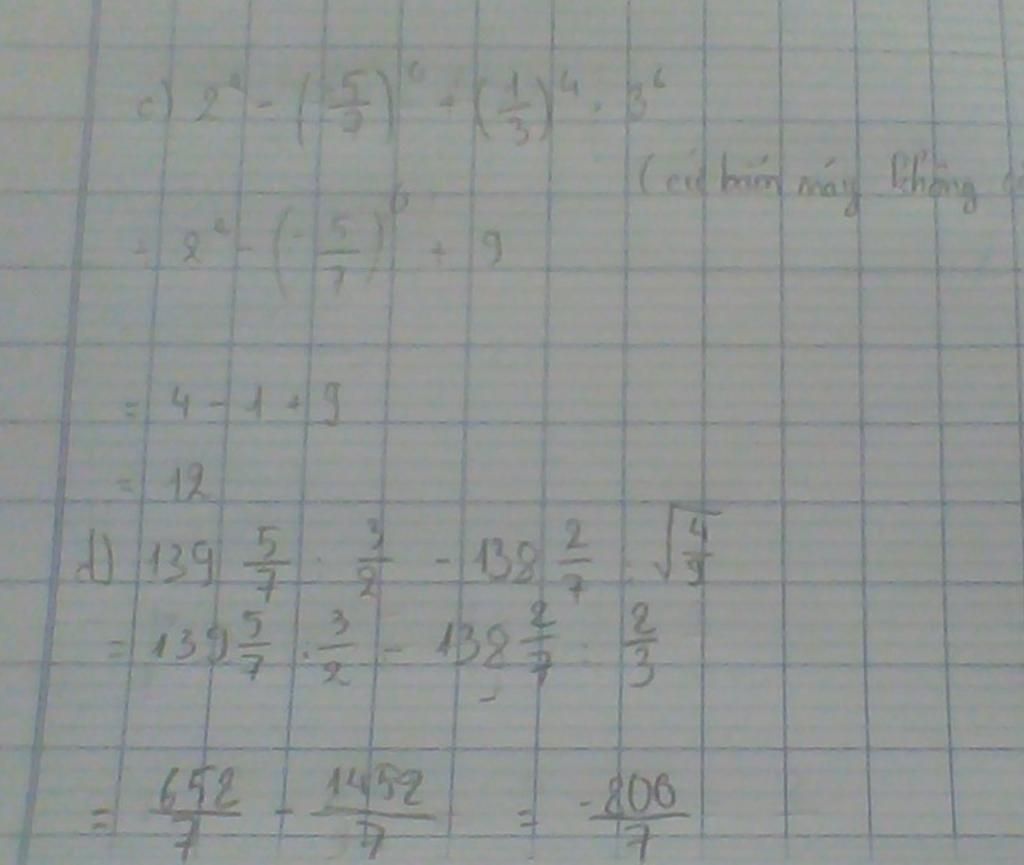 c) 2² - (-5/7)⁰ + (1/3)⁴ . 3⁶
(cứ bấm máy không
= 2² - (-5/7)⁰ + 9
= 4 - 1 + 9
= 12
d) 139 5/7 . 3/2 - 138 2/7 : √4/9
= 139 5/7 . 3/2 - 138 2/7 : 2/3
= 652/7 - 1452/7 = -800/7